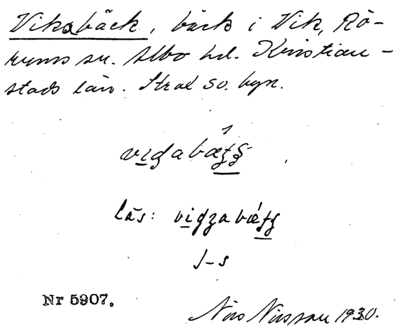 Viksbäck, bäck i Vik, Rö-
rums sn. Albo hd. Kristian-
stads län. Strax so. byn.
vigabæʃʒ.
läs: vigzabæʃʒ
J-s
Nr 5907.
Nils Nilsson 1930.